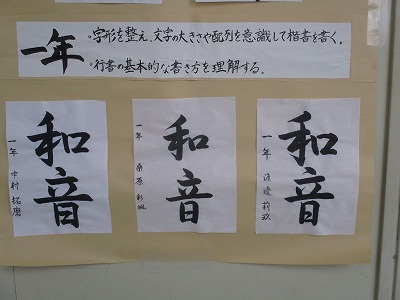 一年
・字形を整え、文字の大きさや配列を意識して楷書を書く。
・行書の基本的な書き方を理解する。
和音
一年 中村 拓磨
和音
一年 桑原
和音
一年 渡邊 莉玖